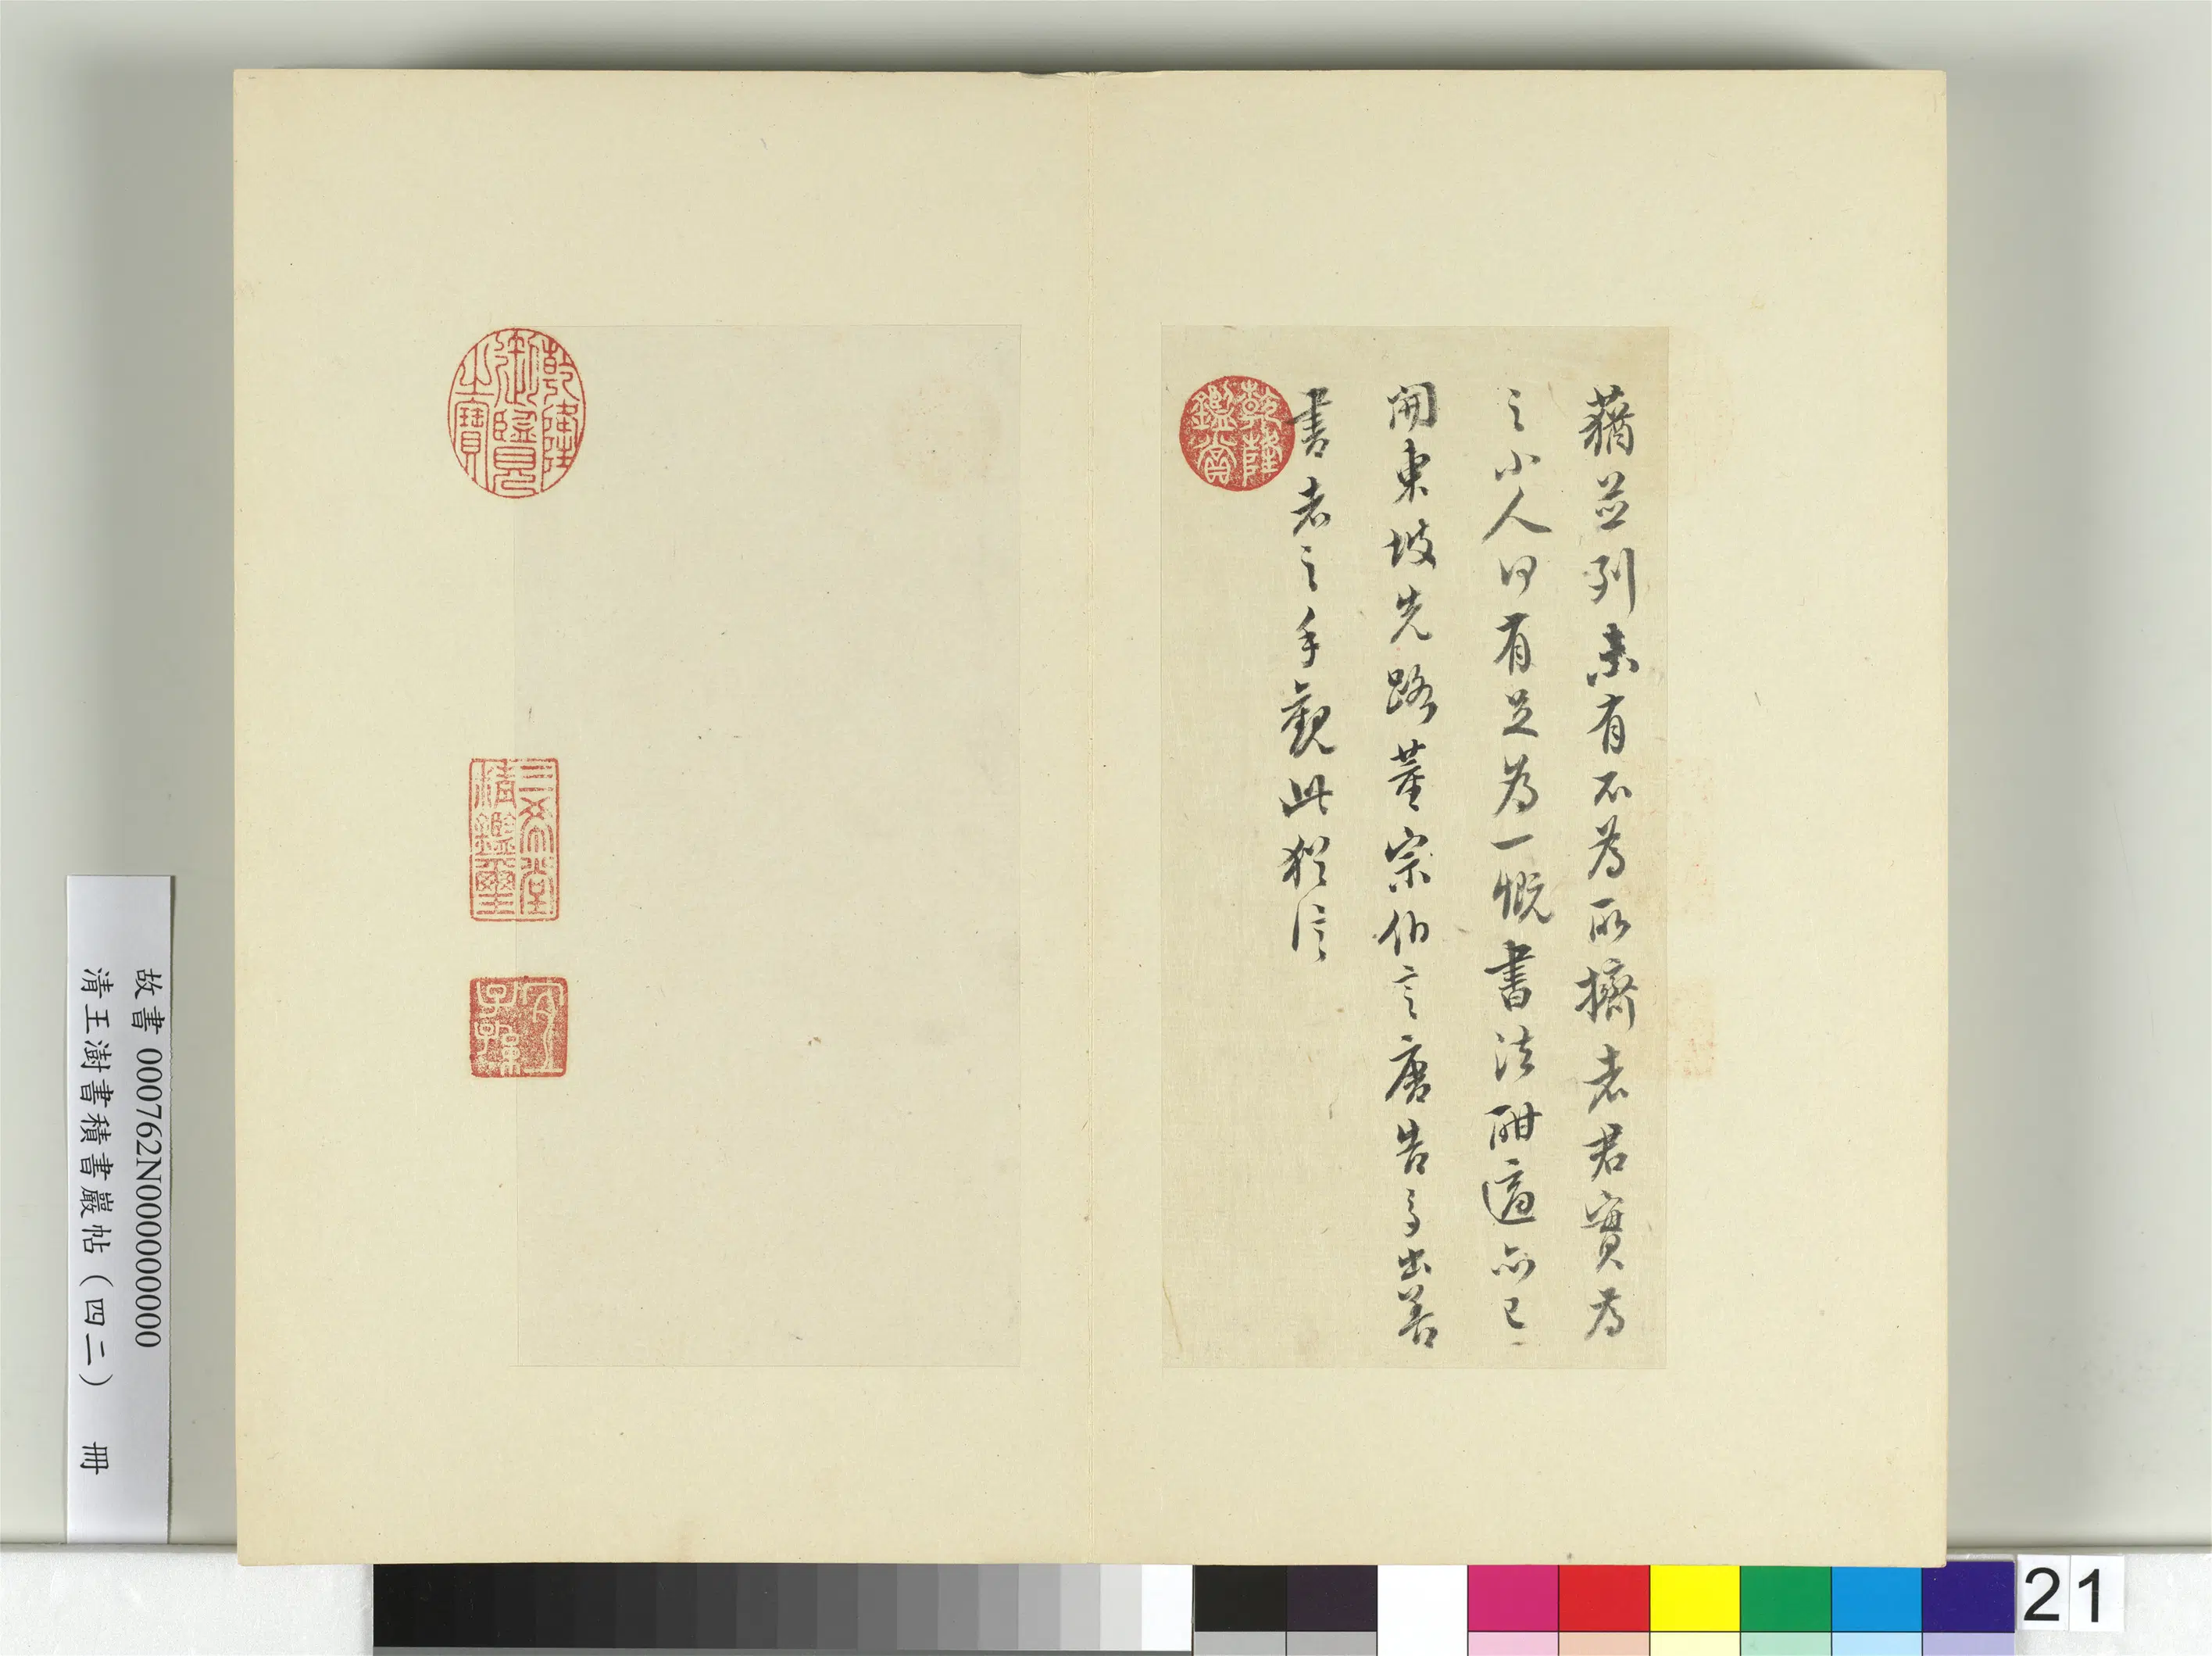 蕕並列未有不為所擠者君實為
之小人何有足為一慨書法酣適亦已
開東坡先路董宗伯言唐告多出善
書者之手觀此猶信
乾隆鑑賞
乾隆御覽之寶
三希堂精鑑璽
宜子孫
故書 000762N000000000
清王澍書積書巖帖(四二) 冊
21